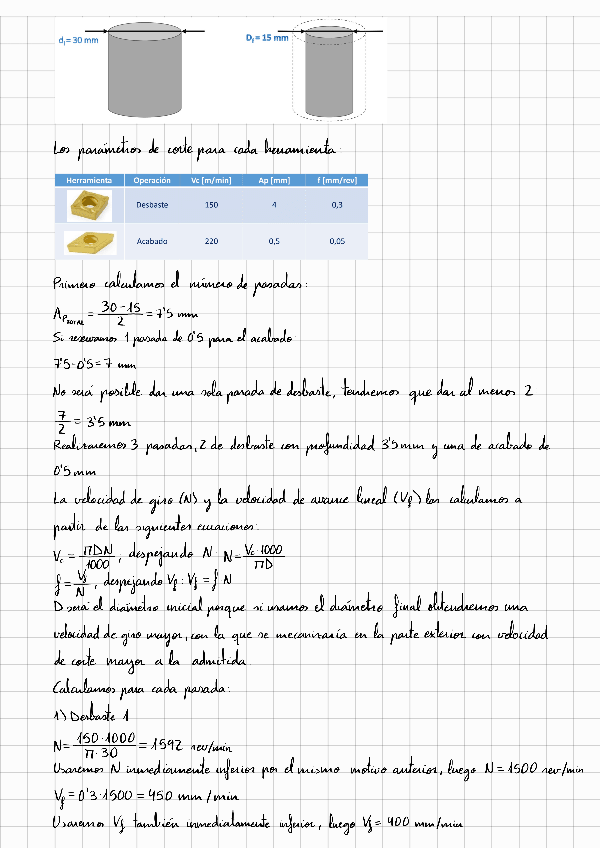 d₁= 30 mm
D_f = 15 mm
Los parámetros de corte para cada herramienta:
Herramienta Operación Vc [m/min] Ap [mm] f [mm/rev]
Desbaste 150 4 0,3
Acabado 220 0,5 0,05
Primero calculamos el número de pasadas:
Ap_TOTAL = (30-15)/2 = 7'5 mm
Si reservamos 1 pasada de 0'5 para el acabado:
7'5-0'5=7 mm
No será posible dar una sola pasada de desbaste, tendremos que dar al menos 2
7/2 = 3'5 mm
Realizaremos 3 pasadas, 2 de desbaste con profundidad 3'5 mm y una de acabado de
0'5 mm
La velocidad de giro (N) y la velocidad de avance lineal (Vf) las calculamos a
partir de las siguientes ecuaciones:
Vc = πDN/1000, despejando N: N = Vc·1000/πD
f = Vf/N, despejando Vf: Vf = f N
D será el diámetro inicial porque si usamos el diámetro final obtendremos una
velocidad de giro mayor, con la que se mecanizaría en la parte exterior con velocidad
de corte mayor a la admitida.
Calculamos para cada pasada:
1) Desbaste 1
N = 150·1000/π·30 = 1592 rev/min
Usaremos N inmediamente inferior por el mismo motivo anterior, luego N = 1500 rev/min
Vf = 0'3·1500 = 450 mm/min
Usaremos Vf también inmediatamente inferior, luego Vf = 400 mm/min